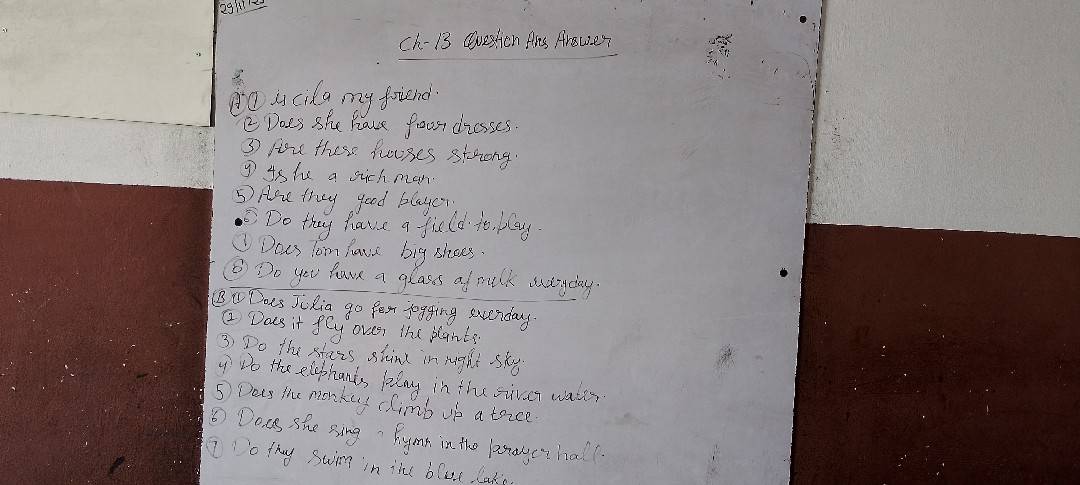 29/11/23
Ch-13 Question Ans Answer
(A) ① is cila my friend.
② Does she have four dresses.
③ Are these houses strong.
④ Is he a rich man.
⑤ Are they good player.
⑥ Do they have a field to play.
⑦ Does Tom have big shoes.
⑧ Do you have a glass of milk everyday.
(B) ① Does Julia go for jogging everday.
② Does it fly over the plants.
③ Do the stars shine in night sky.
④ Do the elephants play in the river water.
⑤ Does the monkey climb up a tree.
⑥ Does she sing a hymn in the prayer hall.
⑦ Do they swim in the blue lake.